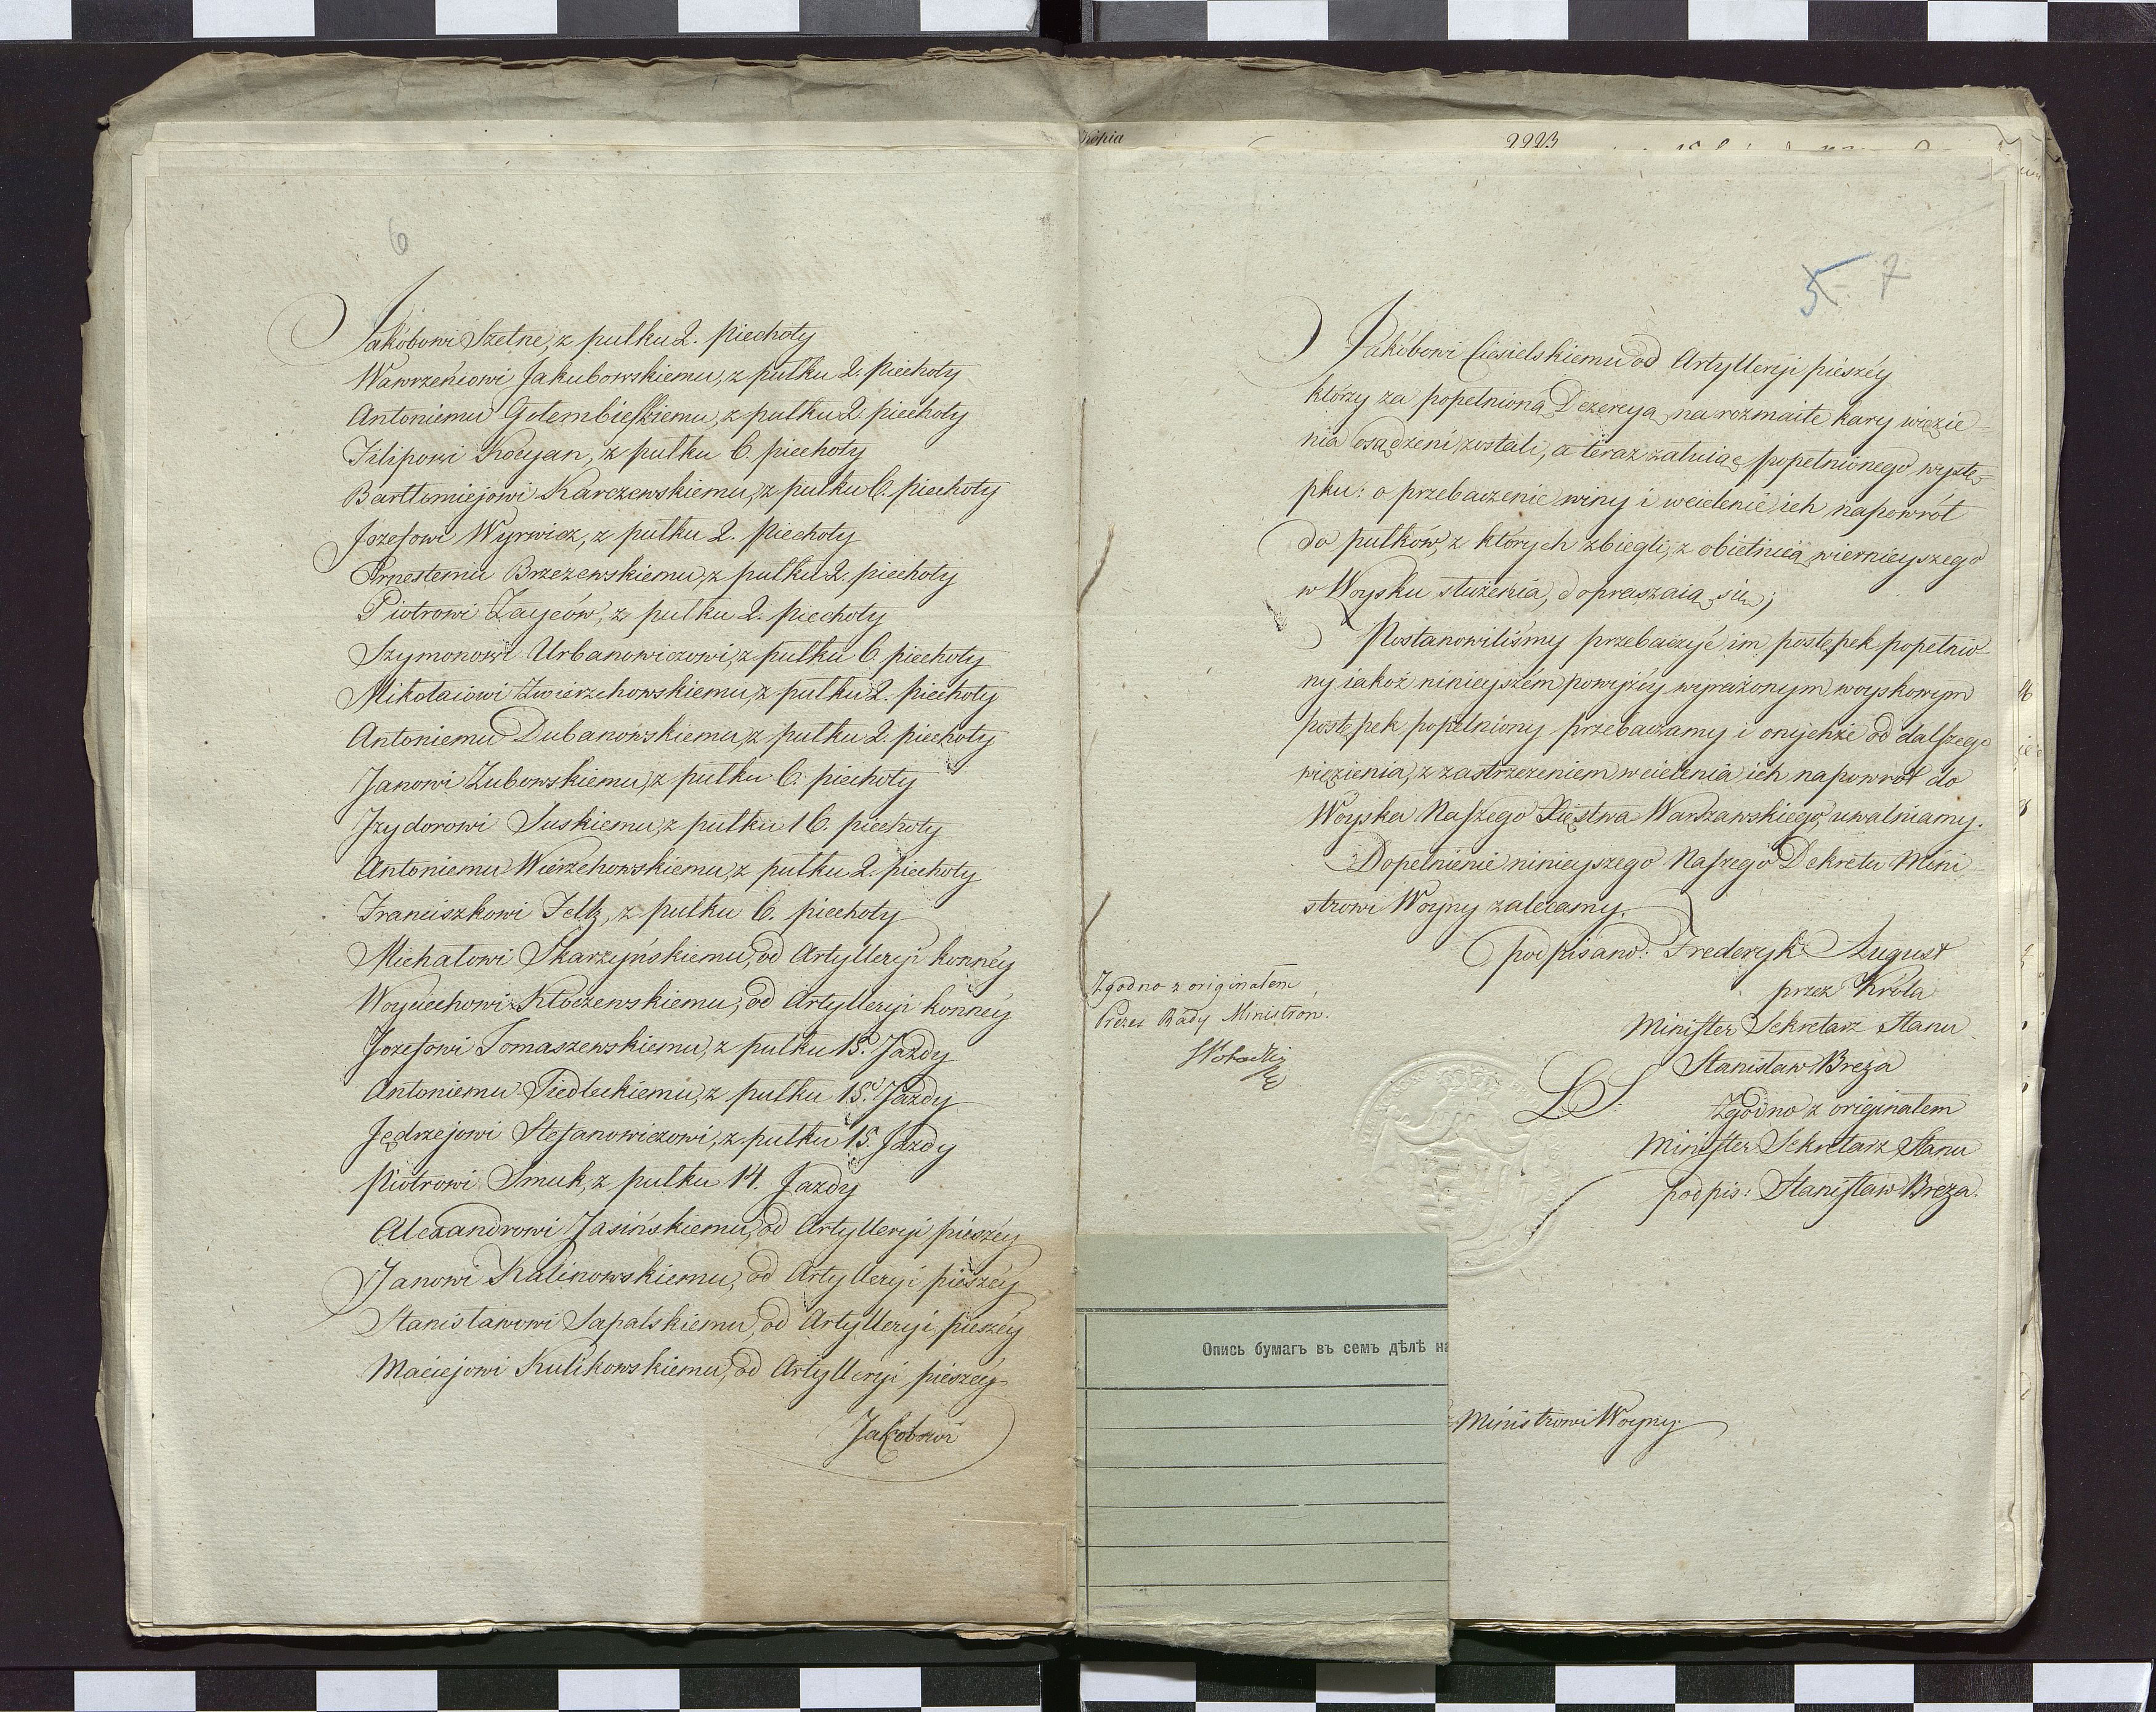 6
Jakóbowi Szelne, z pułku 2. piechoty
Wawrzeńcowi Jakubowskiemu, z pułku 2. piechoty
Antoniemu Gołembieskiemu, z pułku 2. piechoty
Filipowi Kocyan, z pułku 6. piechoty
Bartłomiejowi Karczewskiemu, z pułku 6. piechoty
Józefowi Wyrwicz, z pułku 2. piechoty
Ernestemu Brzezewskiemu, z pułku 2. piechoty
Piotrowi Zayców, z pułku 2. piechoty
Szymonowi Urbanowiczowi, z pułku 6. piechoty
Mikołaiowi Zwierzchowskiemu, z pułku 2. piechoty
Antoniemu Dubanowskiemu, z pułku 2. piechoty
Janowi Zubowskiemu, z pułku 6. piechoty
Izydorowi Suskiemu, z pułku 16. piechoty
Antoniemu Wierzchowskiemu, z pułku 2. piechoty
Franciszkowi Feltz, z pułku 6. piechoty
Michałowi Skarzyńskiemu, od Artylleryi konnéy
Woyciechowi Kłoczewskiemu, od Artylleryi konnéy
Jozefowi Tomaszewskiemu, z pułku 15. Jazdy
Antoniemu Siedleckiemu, z pułku 15. Jazdy
Jędrzejowi Stefanowiczowi, z pułku 15. Jazdy
Piotrowi Smuk, z pułku 14. Jazdy
Alexandrowi Jasińskiemu, od Artylleryi pieszéy
Janowi Kalinowskiemu, od Artylleryi pieszéy
Stanisławowi Sapalskiemu, od Artylleryi pieszéy
Maciejowi Kulikowskiemu, od Artylleryi pieszéy
Jakobowi
Kopia
2223
5 7
Jakóbowi Ciesielskiemu od Artylleryi pieszéy
którzy za popełnioną Dezercyą na rozmaite kary więzie-
nia osądzeni zostali, a teraz załuiąc popełnionego wystę-
pku: o przebaczenie winy i wcielenie ich napowrót
do pułków, z których zbiegli, z obietnicą wiernieyszego
w Woysku służenia, dopraszaią się;
Postanowiliśmy przebaczyć im postępek popełnio-
ny iakoż ninieyszem powyżéy wyrażonym woyskowym
postępek popełniony przebaczamy i onychże od dalszego
więzienia, z zastrzeżeniem wcielenia ich napowrót do
Woyska Naszego Xięstwa Warszawskiego, uwalniamy.
Dopełnienie ninieyszego Naszego Dekretu Mini-
strowi Woyny zalecamy.
podpisano: Frederyk August
przez Króla
Minister Sekretarz Stanu
Stanisław Breza
L.S. Zgodno z originałem
Minister Sekretarz Stanu
podpis: Stanisław Breza.
Zgodno z originałem
Prezes Rady Ministrów.
Опись бумагъ въ семъ дѣлѣ на
Ministrowi Woyny.